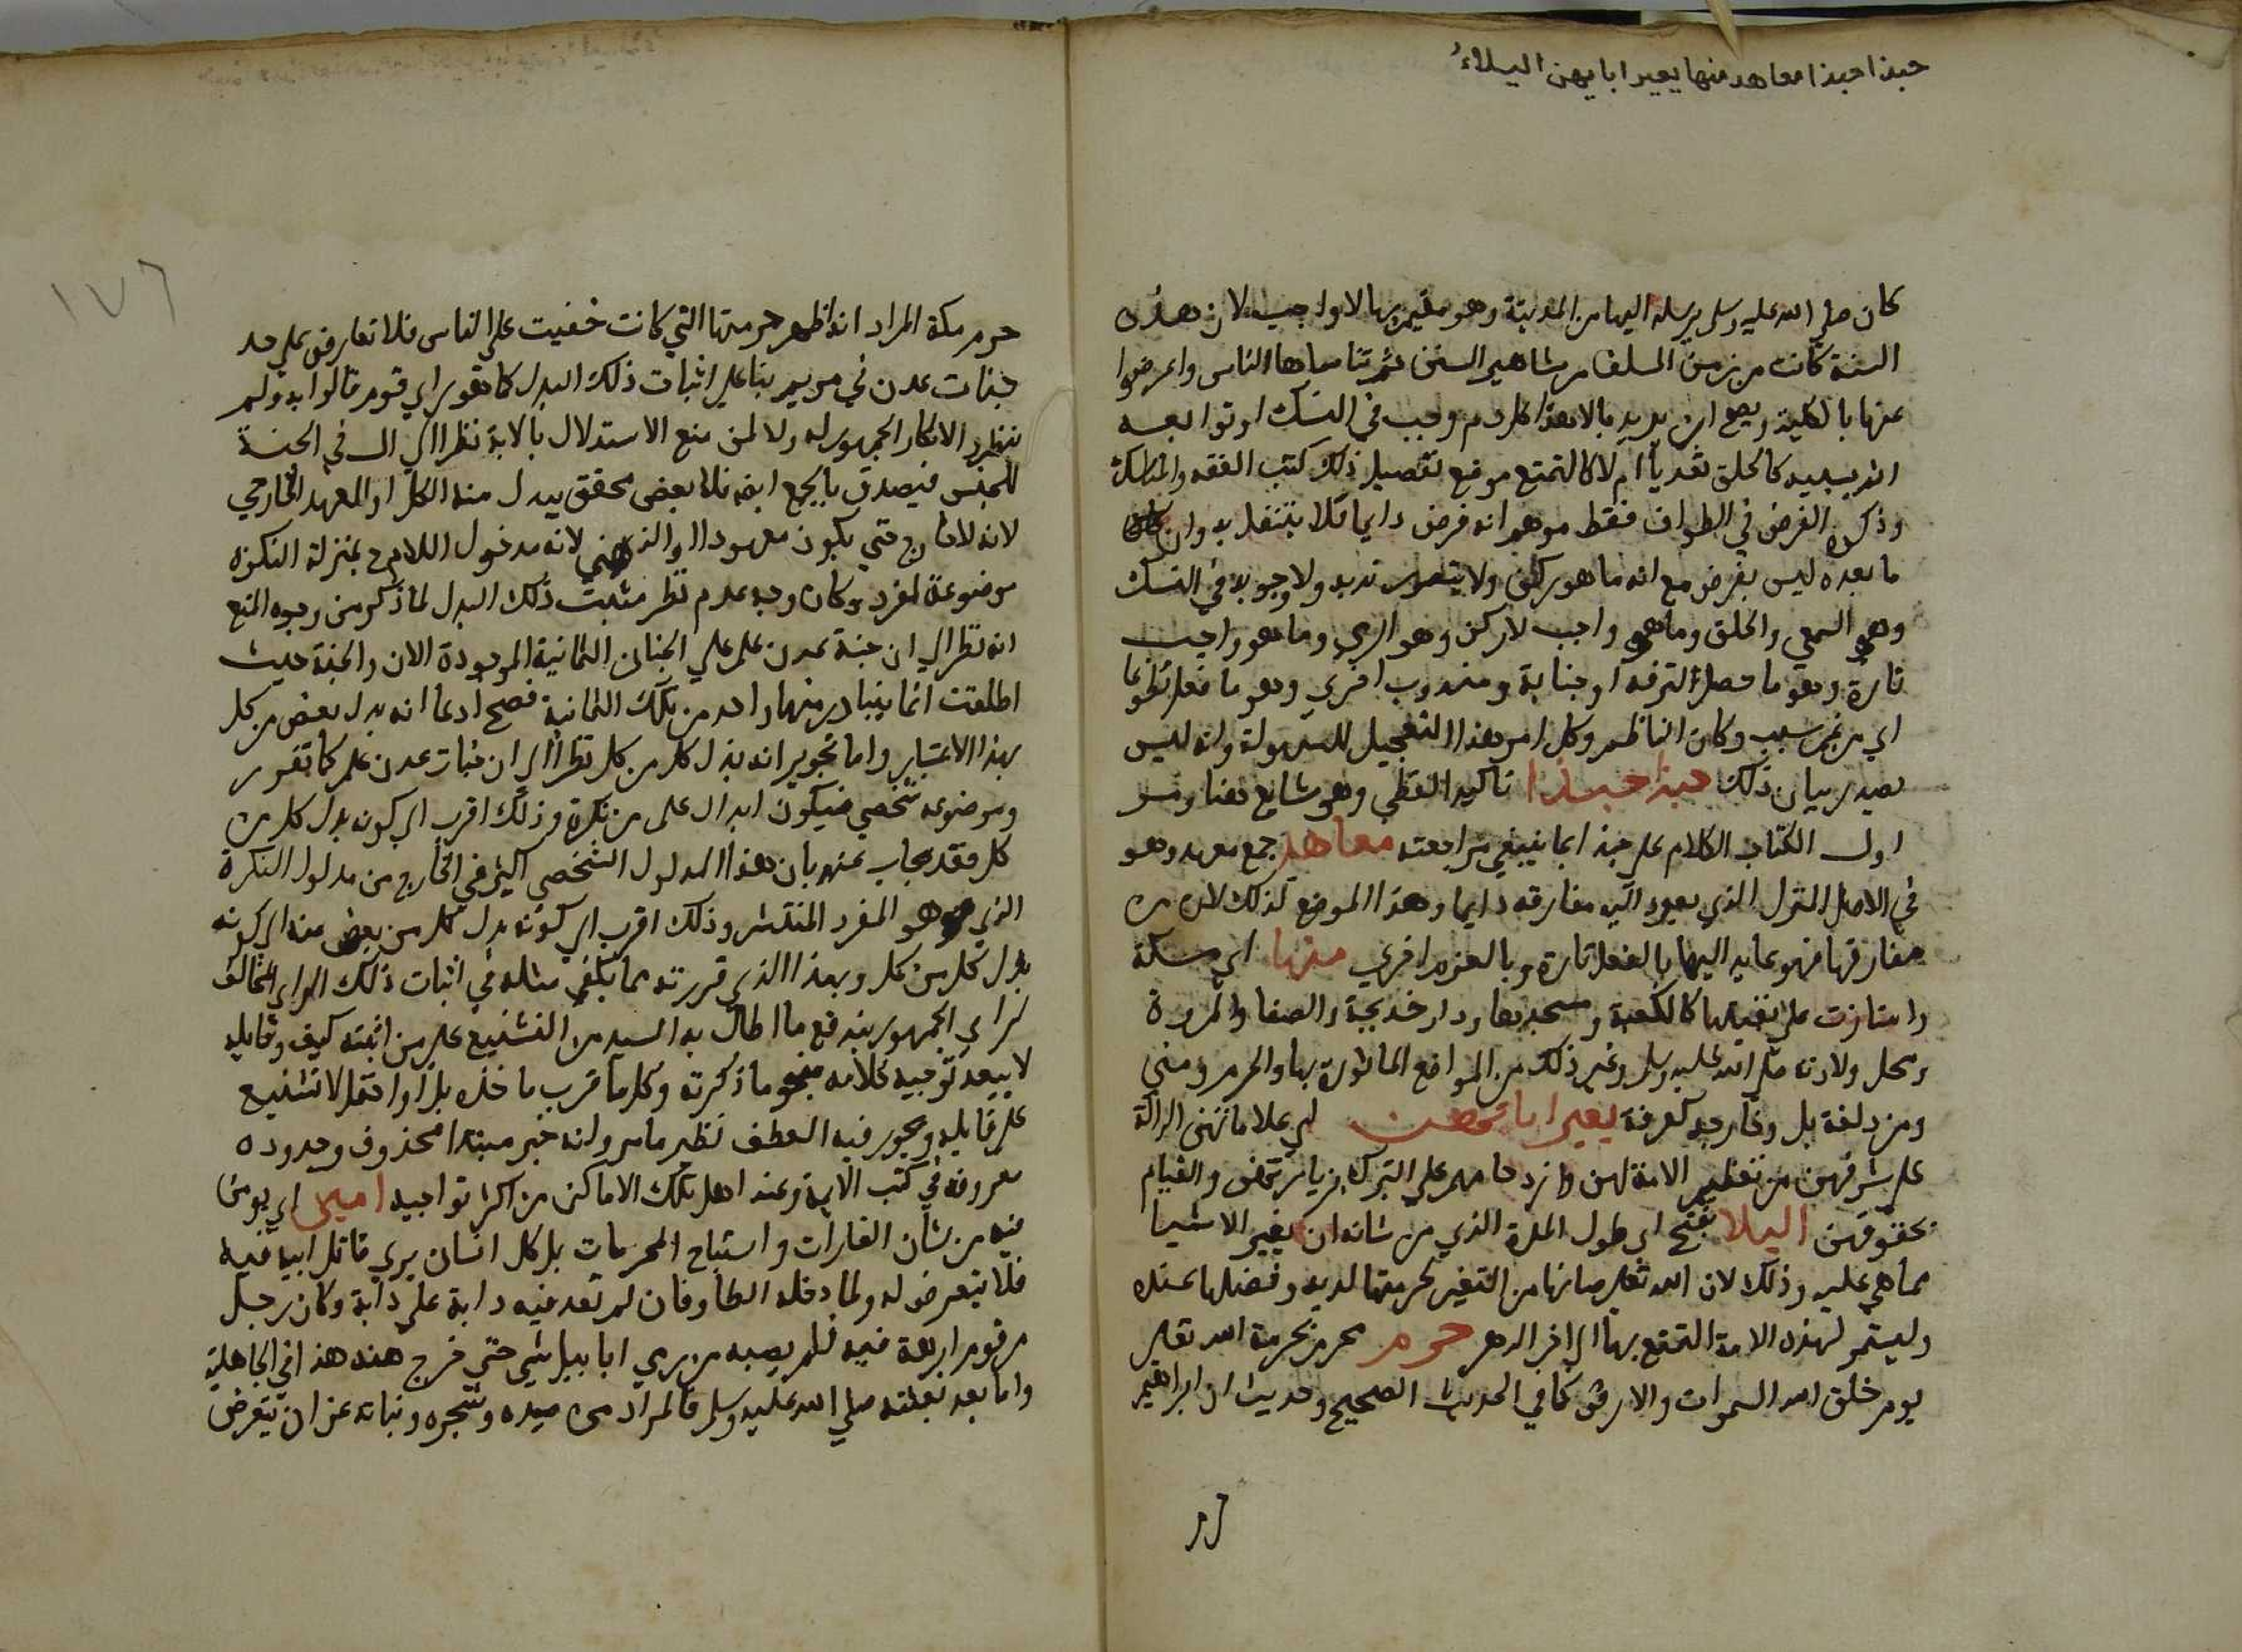 حبذا حبذا معاهد منها يغير اياتهن البلاء
كان صلي الله عليه وسلم يرسله اليها من المدينة وهو مقيم بها لا واجب لان هذه
السنة كانت من زمن السلف من مشاهير السنن ثم تناساها الناس واعرضوا
عنها بالكلية ويصح ان يريد بالاهدا كل دم وجب في النسك او توابعه
اذ بسببه كالحلق تعديا ام لا كالتمتع موضع تفصيل ذلك كتب الفقه والمناسك
وذكره الفرض في الطواف فقط موهم انه فرض دايما فلا يتنفل به وان
ما بعده ليس بفرض مع انه ما هو ركن ولا يتصور ندبه ولا وجوبه في النسك
وهو السعي والحلق وما هو واجب لا ركن وهو الرمي وما هو واجب
تارة وهو ما حصل الترفه او جنابة ومندوب اخري وهو ما فعل تطوعا
اي من غير سبب وكان الناظم وكل امر هذا التعجيل للسهولة وانه ليس
بصدد بيان ذلك حبذا حبذا تاكيد لفظي وهو شايع هنا ومر
اول الكتاب الكلام علي حبذا بما ينبغي مراجعته معاهد جمع معهد وهو
في الاصل المنزل الذي يعود اليه مفارقه دايما وهذا الموضع كذلك لان من
مفارقها فهو عايد اليها بالفعل تارة وبالعزم اخري منها اي مسكة
وامتازت علي بقيتها كالكعبة ومسجدها ودار خديجة والصفا والمروة
ومحل ولادته صلي الله عليه وسلم وغير ذلك من المواضع الماثورة بها والحرم ومني
ومزدلفة بل وخارجه كعرفة يغير اياتهن اي علاماتهن الدالة
علي شرفهن من تعظيم الامة لهن وازدحامهم علي التبرك بزيارتهن والقيام
بحقوقهن البلا بفتح اي طول المدة الذي من شانه ان يغير الاشيا
عما هي عليه وذلك لان الله تعالي صانها من التغير لحرمتها لديه وفضلها عنده
وليستمر لهذه الامة التمتع بها الي اخر الدهر حرم محرم بحرمة الله تعالي
يوم خلق الله السموات والارض كما في الحديث الصحيح وحديث ان ابراهيم
١٧٦
حرم مكة المراد انه اظهر حرمتها التي كانت خفيت علي الناس فلا تعارض علي حد
جنات عدن في مريم بنا علي اثبات ذلك البدل كما هو راي قوم قالوا به ولم
ينظروا لانكار الجمهور له ولا لمن منع الاستدلال بالاية نظرا الي ال في الجنة
للجنس فيصدق بالجمع ايضا فلا بعض محقق يبدل منه الكل او المعهد الخارجي
لانه لا خارج حتي يكون معهودا او الذهني لانه مدخول اللام ح بمنزلة النكرة
موضوعة لمفرد وكان وجه عدم نظر مثبت ذلك البدل لما ذكر من وجوه المنع
انه نظر الي ان جنة عدن علم علي الجنان الثمانية الموجودة الان والجنة حيث
اطلقت انما يتبادر منها واحد من تلك الثمانية فصح ادعا انه بدل بعض من كل
بهذا الاعتبار واما تجوير انه بدل كل من كل نظرا الي ان جنات عدن علم كما تقرر
وموضوعه شخصي فيكون ابدال علم من نكرة وذلك اقرب الي كونه بدل كل من
كل فقد يجاب عنه بان هذا المدلول الشخصي اكثر في الخارج من مدلول النكرة
الذي هو المفرد المنتشر وذلك اقرب الي كونه بدل كل من بعض منه الي كونه
بدل كل من كل وبهذا الذي قررته مما يكفي مثله في اثبات ذلك الراي المخالف
لراي الجمهور يندفع ما اطال به السيد من التشنيع علي من اثبته كيف وقايله
لا يبعد توجيه كلامه بنحو ما ذكرته وكل ما قرب ماخذه بل او احتمل لا تشنيع
علي قايله ويجوز فيه العطف نظير ما مر وانه خبر مبتدا محذوف وحدوده
معروفة في كتب الائمة وعند اهل تلك الاماكن من اكثر نواحيه امين اي يومن
فيه من شان الغارات واستباح المحرمات بل كل انسان يري قاتل ابيه فيه
فلا يتعرض له ولما دخله الطاوفان لم تعد فيه دابة علي دابة وكان رجل
من قوم ابرهة فيه فلم يصبه من رمي ابابيل شي حتي خرج منه هذا في الجاهلية
واما بعد بعثته صلي الله عليه وسلم فالمراد من صيده وشجره ونباته عن ان يتعرض